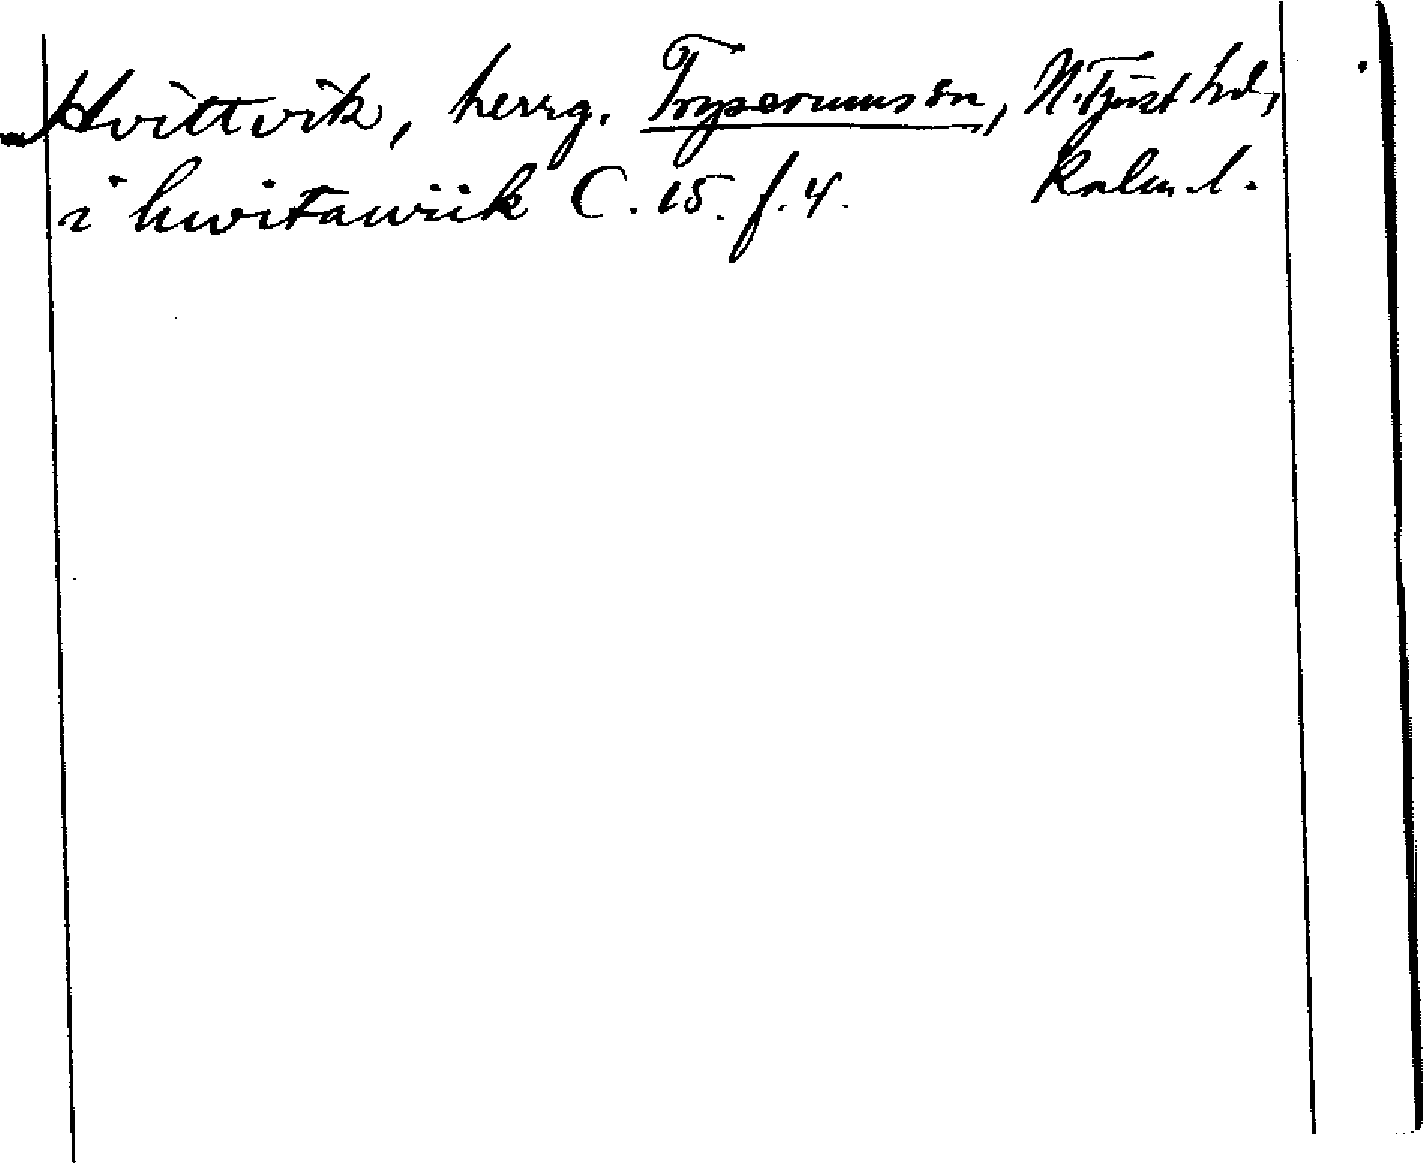 Hvittvik, herrg. Tryserums sn, N. Tjust hd,
i hwitawiik C. 15. f. 4. Kalm. l.